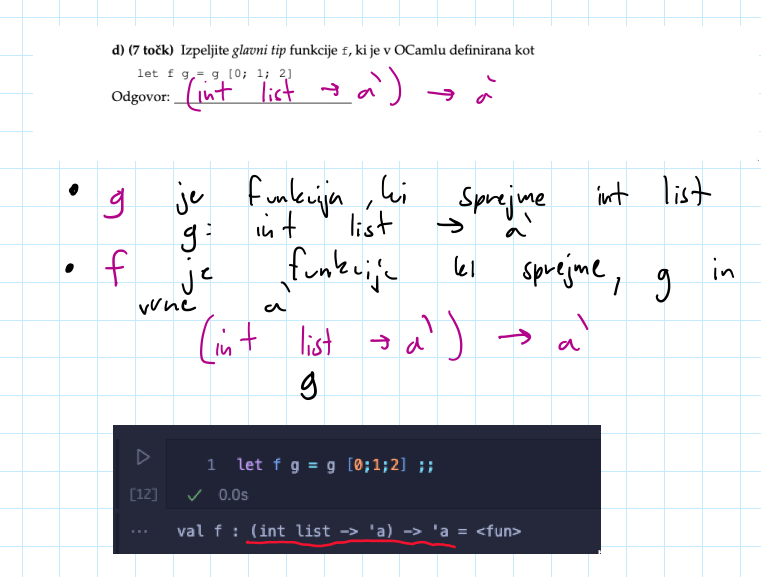 d) (7 točk) Izpeljite glavni tip funkcije f, ki je v OCamlu definirana kot
let f g = g [0; 1; 2]
Odgovor: (int list → a`) → a`
• g je funkcija, ki sprejme int list
g: int list → a`
• f je funkcija ki sprejme, g in
vrne a`
(int list → a`) → a`
g
1 let f g = g [0;1;2] ;;
[12] ✓ 0.0s
... val f : (int list -> 'a) -> 'a = <fun>